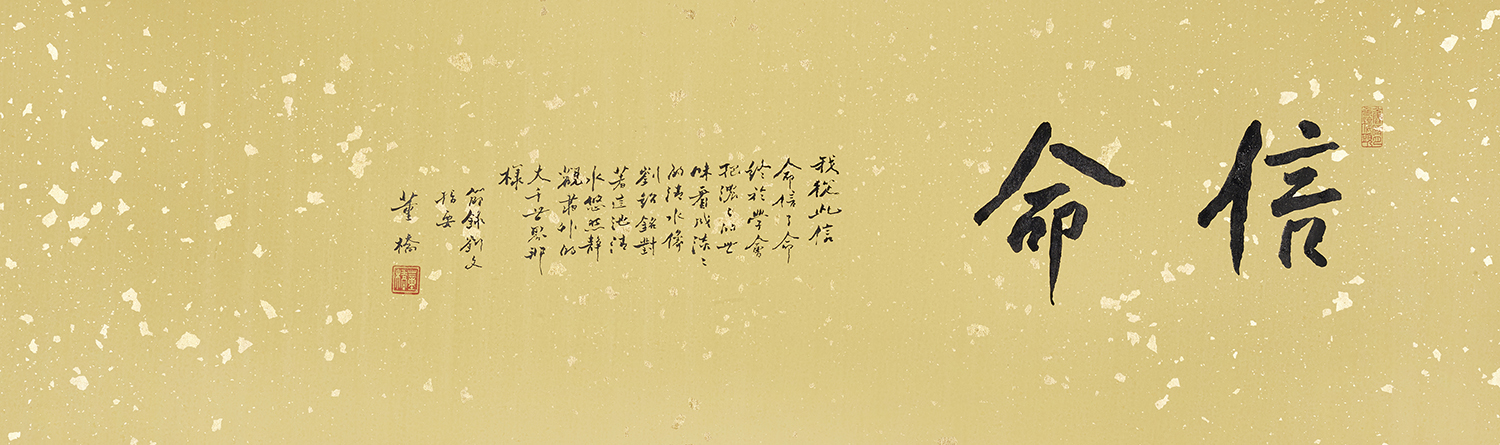 信命
我從此信
命信了命
終於學會
把濃濃的世
味看成淡淡
的清水像
劉鉞銘對
著這池清
水悠然靜
觀帘外的
大千世界那
樣
節錄劉文
董橋